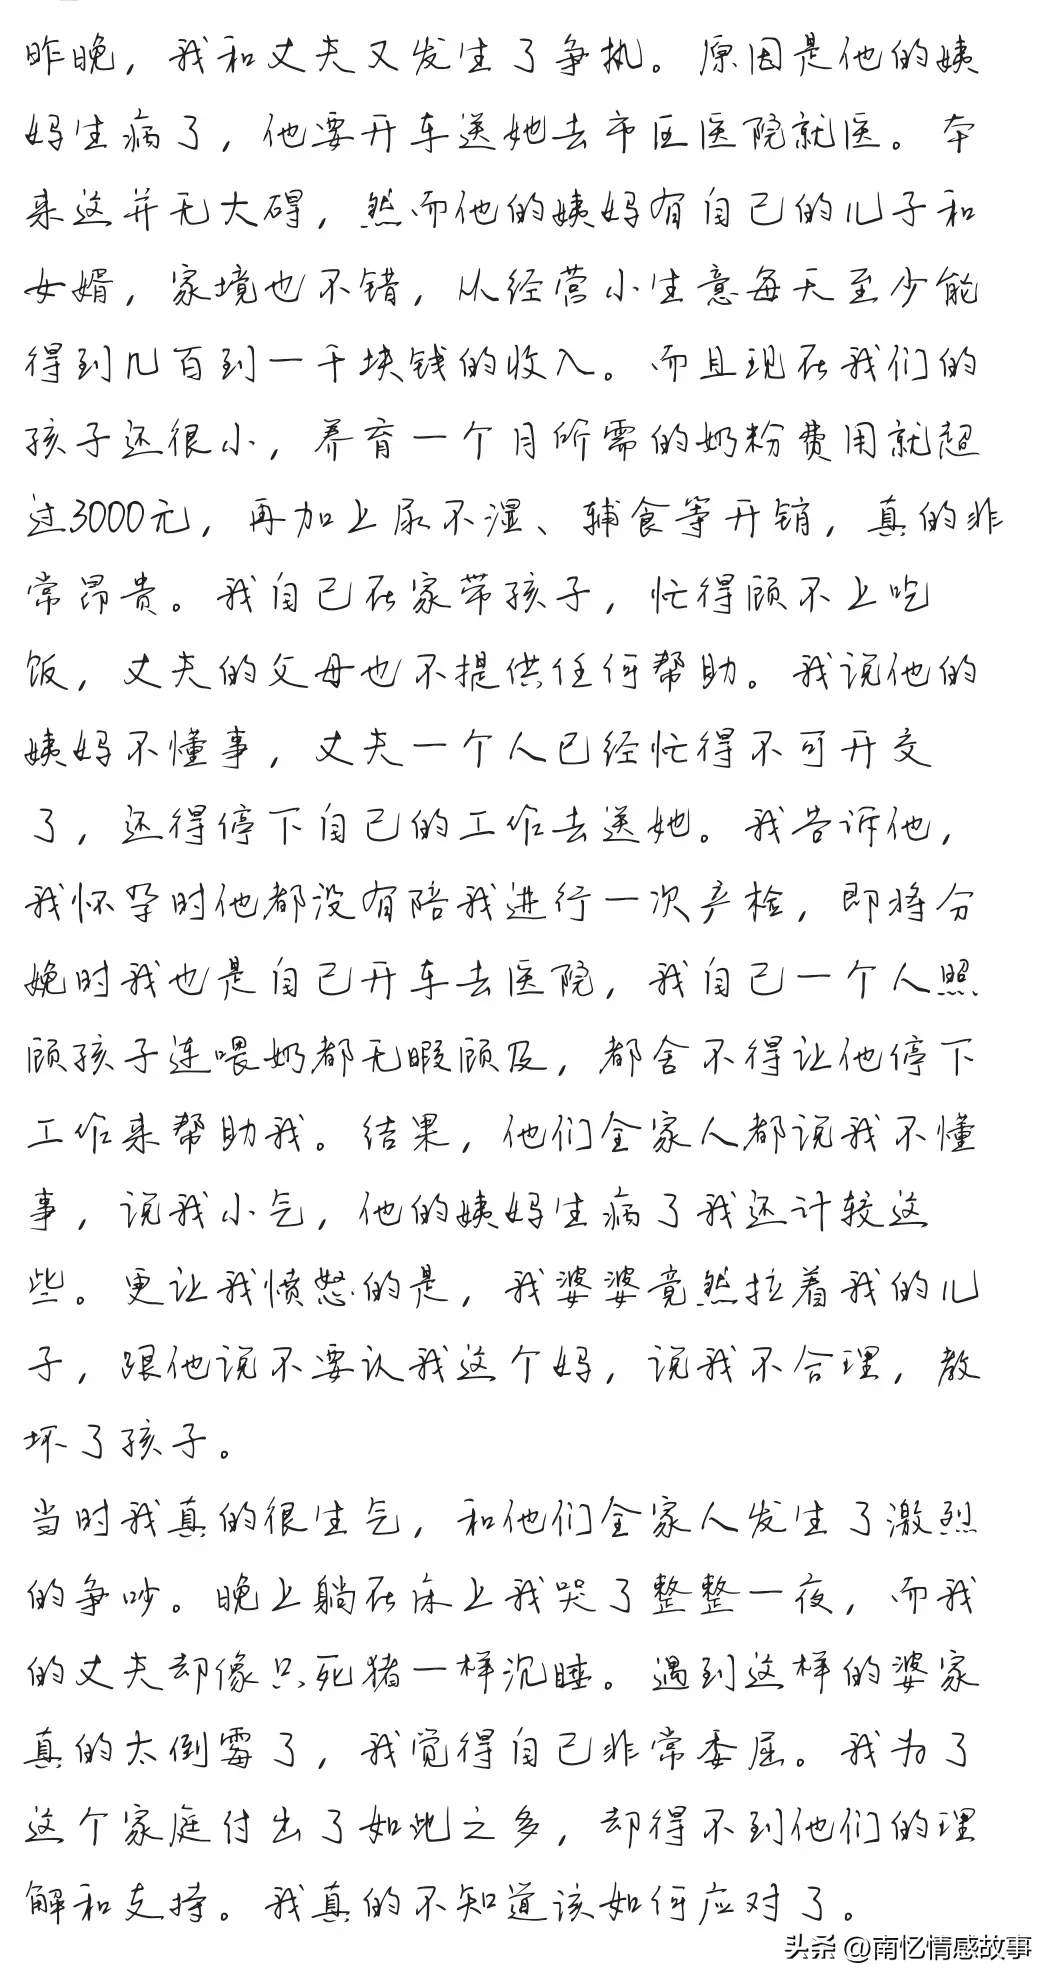 昨晚，我和丈夫又发生了争执。原因是他的姨
妈生病了，他要开车送她去市区医院就医。本
来这并无大碍，然而他的姨妈有自己的儿子和
女婿，家境也不错，从经营小生意每天至少能
得到几百到一千块钱的收入。而且现在我们的
孩子还很小，养育一个月所需的奶粉费用就超
过3000元，再加上尿不湿、辅食等开销，真的非
常昂贵。我自己在家带孩子，忙得顾不上吃
饭，丈夫的父母也不提供任何帮助。我说他的
姨妈不懂事，丈夫一个人已经忙得不可开交
了，还得停下自己的工作去送她。我告诉他，
我怀孕时他都没有陪我进行一次产检，即将分
娩时我也是自己开车去医院，我自己一个人照
顾孩子连喂奶都无暇顾及，都舍不得让他停下
工作来帮助我。结果，他们全家人都说我不懂
事，说我小气，他的姨妈生病了我还计较这
些。更让我愤怒的是，我婆婆竟然拉着我的儿
子，跟他说不要认我这个妈，说我不合理，教
坏了孩子。
当时我真的很生气，和他们全家人发生了激烈
的争吵。晚上躺在床上我哭了整整一夜，而我
的丈夫却像只死猪一样沉睡。遇到这样的婆家
真的太倒霉了，我觉得自己非常委屈。我为了
这个家庭付出了如此之多，却得不到他们的理
解和支持。我真的不知道该如何应对了。
头条 @南忆情感故事